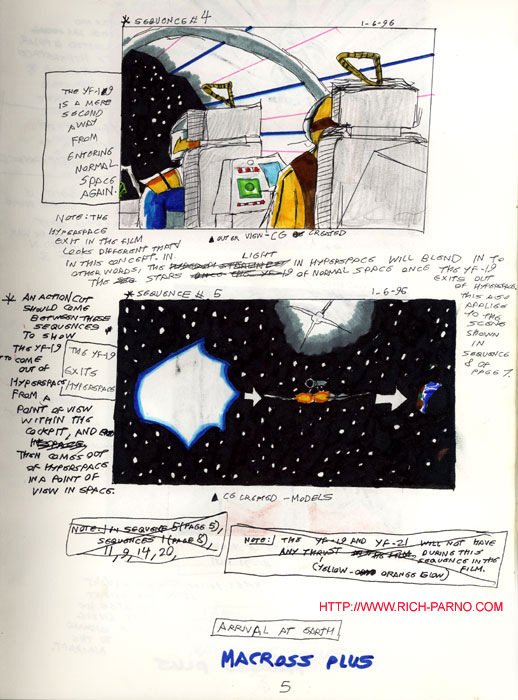 * SEQUENCE #4
1-6-96
THE YF-19
IS A MERE
SECOND
AWAY
FROM
ENTERING
NORMAL
SPACE
AGAIN.
▲ OUTER VIEW-CG CREATED
NOTE: THE
HYPERSPACE
EXIT IN THE FILM
LOOKS DIFFERENT THAN
IN THIS CONCEPT. IN
OTHER WORDS, THE LIGHT IN HYPERSPACE WILL BLEND IN TO
THE STARS OF NORMAL SPACE ONCE THE YF-19
EXITS OUT
OF HYPERSPACE.
THIS ALSO
APPLIES
TO THE
SCENE
SHOWN
IN
SEQUENCE
8 OF
PAGE 7.
* SEQUENCE # 5
1-6-96
* AN ACTION CUT
SHOULD COME
BETWEEN THESE
SEQUENCES
TO SHOW
THE YF-19
TO COME
OUT OF
HYPERSPACE
FROM A
POINT OF VIEW
WITHIN THE
COCKPIT, AND
THEN COMES OUT
OF HYPERSPACE
IN A POINT OF
VIEW IN SPACE.
THE YF-19
EXITS
HYPERSPACE
▲ CG CREATED - MODELS
NOTE: IN SEQUENCE 5 (PAGE 5),
SEQUENCES 1 (PAGE 8),
11, 9, 14, 20,
NOTE: THE YF-19 AND YF-21 WILL NOT HAVE
ANY THRUST DURING THIS
SEQUENCE IN THE
FILM.
(YELLOW- ORANGE GLOW)
HTTP://WWW.RICH-PARNO.COM
ARRIVAL AT EARTH
MACROSS PLUS
5